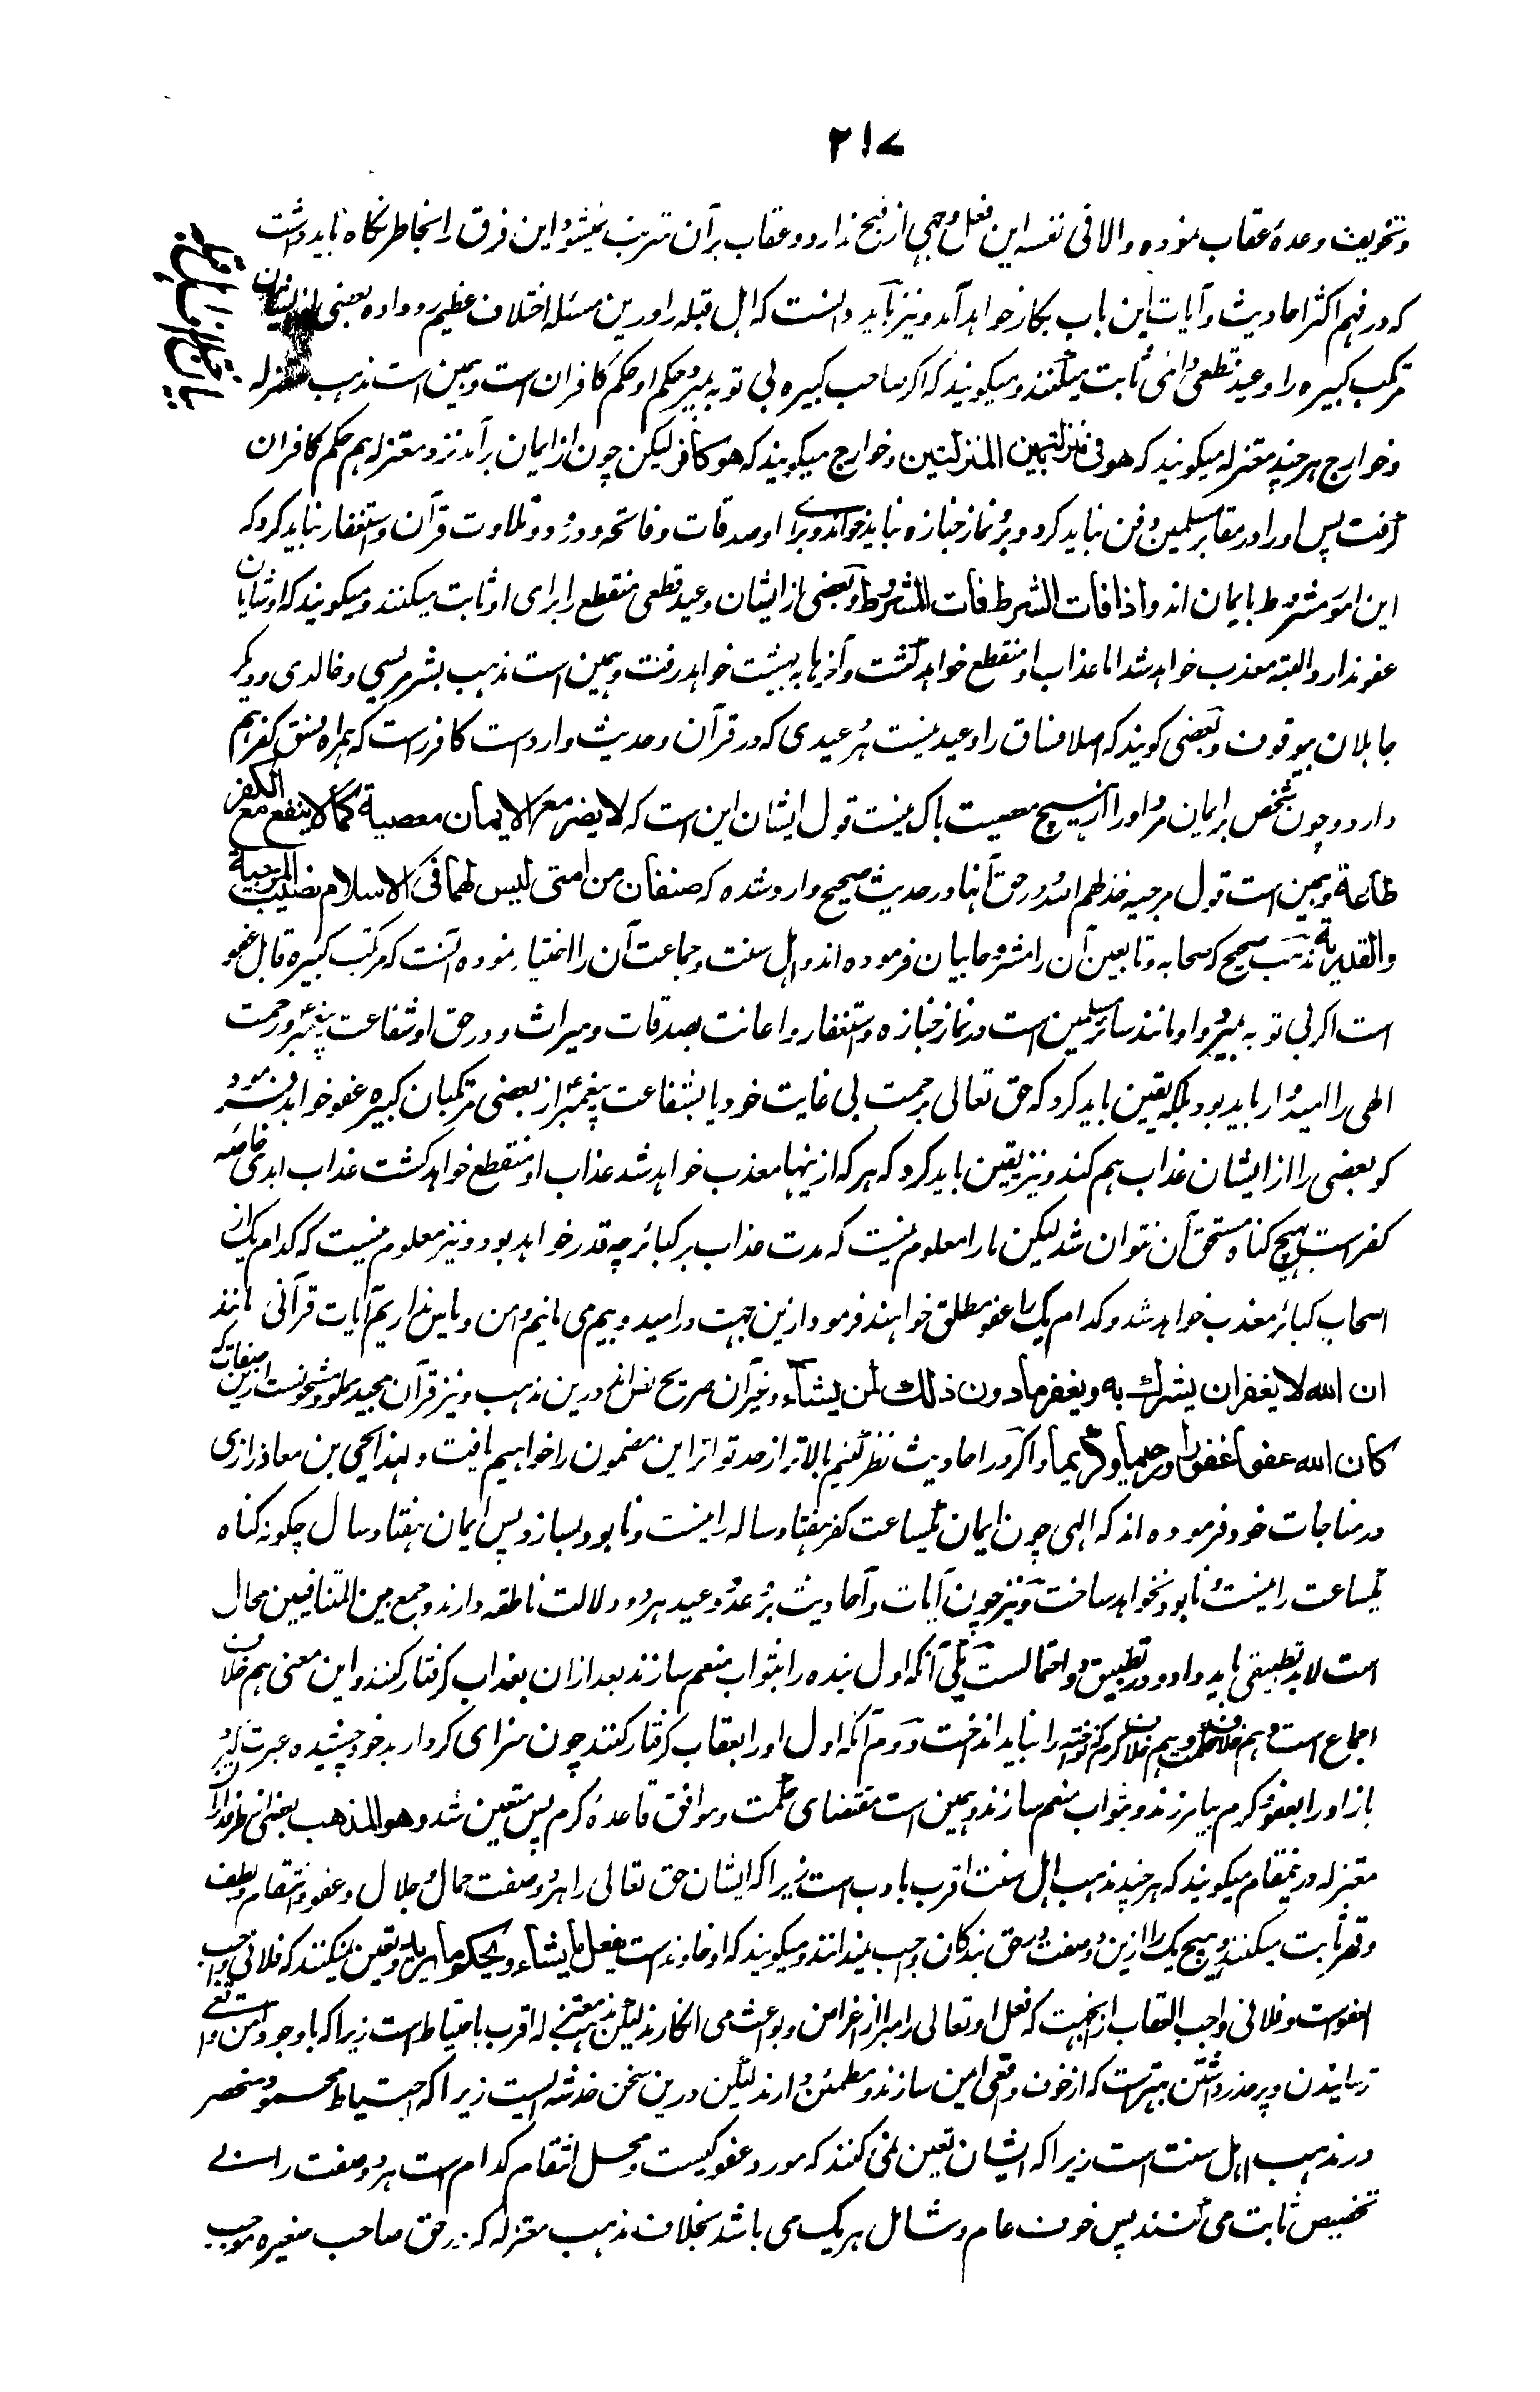 ۲۱۷
وتخویف وعدهٔ عقاب نموده والا فی نفسه این فعل وجهی از قبح ندارد و عقاب بر آن مترتب نمیشود این فرق را بخاطر نگاه باید داشت
که در فهم اکثر احادیث و آیات این باب بکار خواهد آمد و نیز باید دانست که اهل قبله را درین مسئله اختلاف عظیم رو داده بعضی از ایشان
مرتکب کبیره را وعید قطعی دائمی ثابت میکنند و میگویند که اگر صاحب کبیره بی توبه بمیرد حکم او حکم کافران است و همین است مذهب معتزله
و خوارج هر چند معتزله میگویند که هو فی منزلة بین المنزلتین و خوارج میگویند که هو کافر لیکن چون از ایمان برآمد نزد معتزله هم حکم کافران
گرفت پس او را در مقابر مسلمین دفن نباید کرد و برو نماز جنازه نباید خواند و برای او صدقات و فاتحه و درود و تلاوت قرآن و استغفار نباید کرد که
این امور مشروط بایمان اند و اذا فات الشرط فات المشروط و بعضی از ایشان وعید قطعی منقطع را برای او ثابت میکنند و میگویند که او شایان
عفو ندارد و البته معذب خواهد شد اما عذاب او منقطع خواهد گشت و آخرها به بهشت خواهد رفت و همین است مذهب بشر مریسی و خالدی و دیگر
جاهلان بیوقوف و بعضی گویند که اصلا فساق را وعید نیست هر وعیدی که در قرآن و حدیث وارد است کافر راست که همراه فسق کفر هم
دارد و چون شخص بر ایمان مرد او را از هیچ معصیت باک نیست قول ایشان این است که لا یضر مع الایمان معصیة کما لا ینفع مع الکفر
طاعة و همین است قول مرجیه خذلهم الله و در حق آنها در حدیث صحیح وارد شده که صنفان من امتی لیس لهما فی الاسلام نصیب المرجیة
والقدریة مذهب صحیح که صحابه و تابعین آن را مشروحا بیان فرموده اند و اهل سنت و جماعت آن را اختیار نموده آنست که مرتکب کبیره قابل عفو
است اگر بی توبه بمیرد و او مانند سائر مسلمین است در نماز جنازه و استغفار و اعانت بصدقات و میراث و در حق او شفاعت پیغمبر و رحمت
الهی را امیدوار باید بود بلکه یقین باید کرد که حق تعالی برحمت بی غایت خود یا بشفاعت پیغمبر از بعضی مرتکبان کبیره عفو خواهد فرمود
گو بعضی را از ایشان عذاب هم کند و نیز یقین باید کرد که هر که ازینها معذب خواهد شد عذاب او منقطع خواهد گشت عذاب ابدی خاصه
کفر است بهیچ گناه مستحق آن نتوان شد لیکن ما را معلوم نیست که مدت عذاب بر کبائر چه قدر خواهد بود و نیز معلوم نیست که کدام یک از
اصحاب کبائر معذب خواهد شد و کدام یک را عفو مطلق خواهند فرمود ازین جهت در امید و بیم می مانیم و امن و یأس نداریم آیات قرآنی مانند
ان الله لا یغفر ان یشرک به و یغفر ما دون ذلک لمن یشآء و غیر آن صریح نص اند درین مذهب و نیز قرآن مجید مملو و مشحونست ازین صفات که
کان الله عفوا غفورا و رحیما و کریما و اگر در احادیث نظر کنیم بالاتر از حد تواتر این مضمون را خواهیم یافت و لهذا یحیی بن معاذ رازی
در مناجات خود فرموده اند که الهی چون ایمان یکساعت کفر هفتاد ساله را نیست و نابود بسازد پس ایمان هفتاد سال چگونه گناه
یکساعت را نیست و نابود نخواهد ساخت و نیز چون آیات و احادیث بر وعد و وعید هر دو دلالت ناطقه دارند و جمع بین المتنافیین محال
است لابد تطبیقی باید داد و در تطبیق دو احتمالست یکی آنکه اول بنده را بثواب منعم سازند بعد ازان بعذاب گرفتار کنند و این معنی هم خلاف
اجماع است و هم خلاف حکمت و هم خلاف کرم که نواخته را نباید انداخت دوم آنکه اول او را بعقاب گرفتار کنند چون سزای کردار بد خود چشیده عبرت گیرد
باز او را بعفو و کرم بیامرزند و بثواب منعم سازند و همین است مقتضای حکمت و موافق قاعدهٔ کرم پس متعین شد و هو المذهب بعضی از طرفداران
معتزله درینمقام میگویند که هر چند مذهب اهل سنت اقرب بادب است زیرا که ایشان حق تعالی را هر دو صفت جمال و جلال و عفو و انتقام و لطف
و قهر ثابت میکنند و هیچ یک را ازین دو صفت در حق بندگان واجب نمیدانند و میگویند که او خاوند است یفعل ما یشاء و یحکم ما یرید و تعین نمیکنند که فلانی واجب
العفو است و فلانی واجب العقاب ازینجهت که فعل او تعالی را مبرا از اغراض و بواعث می انگارند لیکن مذهب معتزله اقرب باحتیاط است زیرا که با وجود امن واقعی
ترسانیدن و پر حذر داشتن بهتر است که از خوف واقعی امین سازند و مطمئن دارند لیکن درین سخن خدشه ایست زیرا که احتیاط محمود منحصر
در مذهب اهل سنت است زیرا که ایشان تعین نمی کنند که مورد عفو کیست و محل انتقام کدام است هر دو صفت را بے
تخصیص ثابت می کنند پس خوف عام و شامل هر یک می باشد بخلاف مذهب معتزله که در حق صاحب صغیره موجب